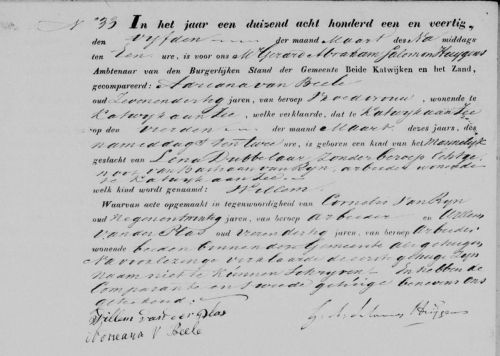 N° 33 In het jaar een duizend acht honderd een en veertig,
den Vyfden der maand Maart des Na middags
ten Een ure, is voor ons Mr Gerard Abraham Salomon
Ambtenaar van den Burgerlijken Stand der Gemeente Beide Katwijken en het Zand,
gecompareerd: Adriana van Beele
oud Zevenendertig jaren, van beroep Vroedvrouw, wonende te
Katwyk aan Zee, welke verklaarde, dat te Katwyk aan Zee
op den vierden der maand Maart dezes jaars, des
nameddags ten twee ure, is geboren een kind van het Mannelyk
geslacht van Lena Dubbelaar, Zonder beroep
van van Ryn, arbeider wonende
te Katwyk aan Zee
welk kind wordt genaamd: Willem
Waarvan acte opgemaakt in tegenwoordigheid van Cornelis van Ryn
oud jaren, van beroep Arbeider en Willem
van der Plas oud jaren, van beroep Arbeider
wonende beiden binnen deze Gemeente als getuigen
Na voorlezinge verklaarde de eerst getuige Zyn
Naam niet te kunnen Schryven En hebben de
Comparante en tweede getuige benevens ons
geteekend:
Willem van der Plas
Adrieana V Beele